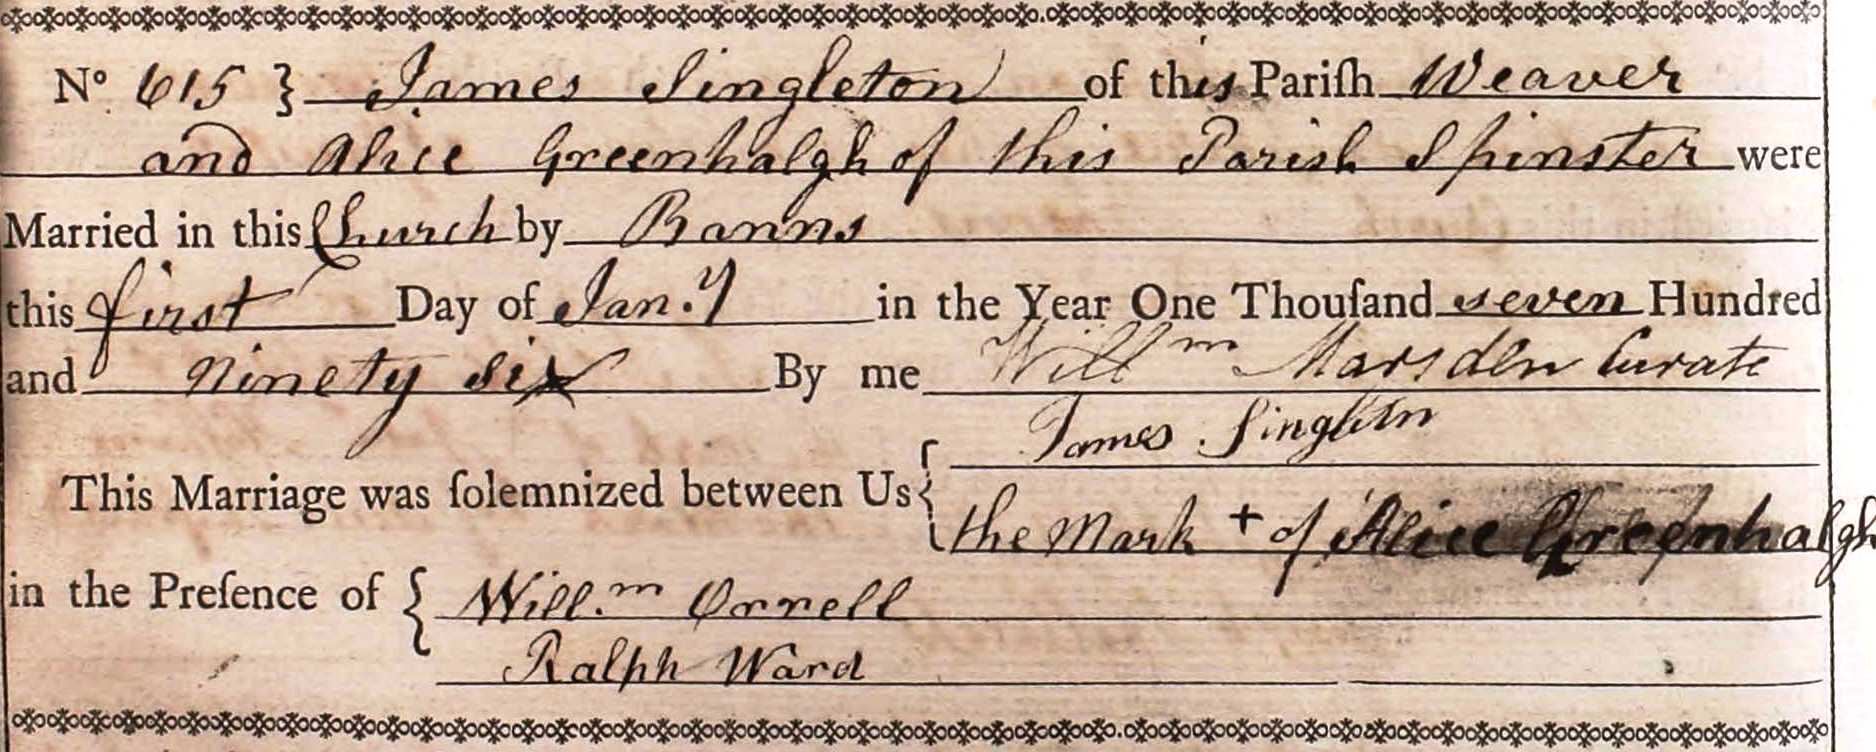 No 615 } James Singleton of this Pariſh Weaver
and Alice Greenhalgh of this Parish Spinster were
Married in this Church by Banns
this first Day of Jan.y in the Year One Thouſand seven Hundred
and Ninety six By me Willm Marsden Curate
James Singleton
This Marriage was ſolemnized between Us {
the Mark + of Alice Greenhalgh
in the Preſence of { Will.m Orrell
Ralph Ward